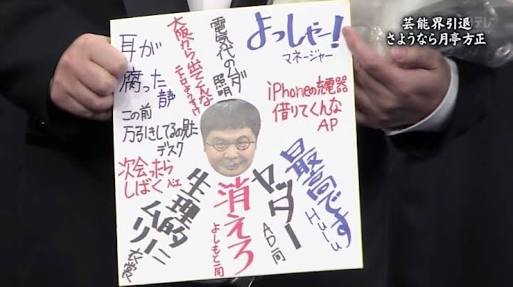 芸能界引退
さようなら月亭方正
よっしゃー!
マネージャー
電気代のムダ
照明
大阪から出てくんな
耳が
腐った
静
この前
万引きしてるの見た
デスク
次会ったら
しばく
生理的に
ムリー
衣裳
消えろ
よしもと一同
ヤッター
AD一同
最高です
Hulu
iPhoneの充電器
借りてくんな
AP